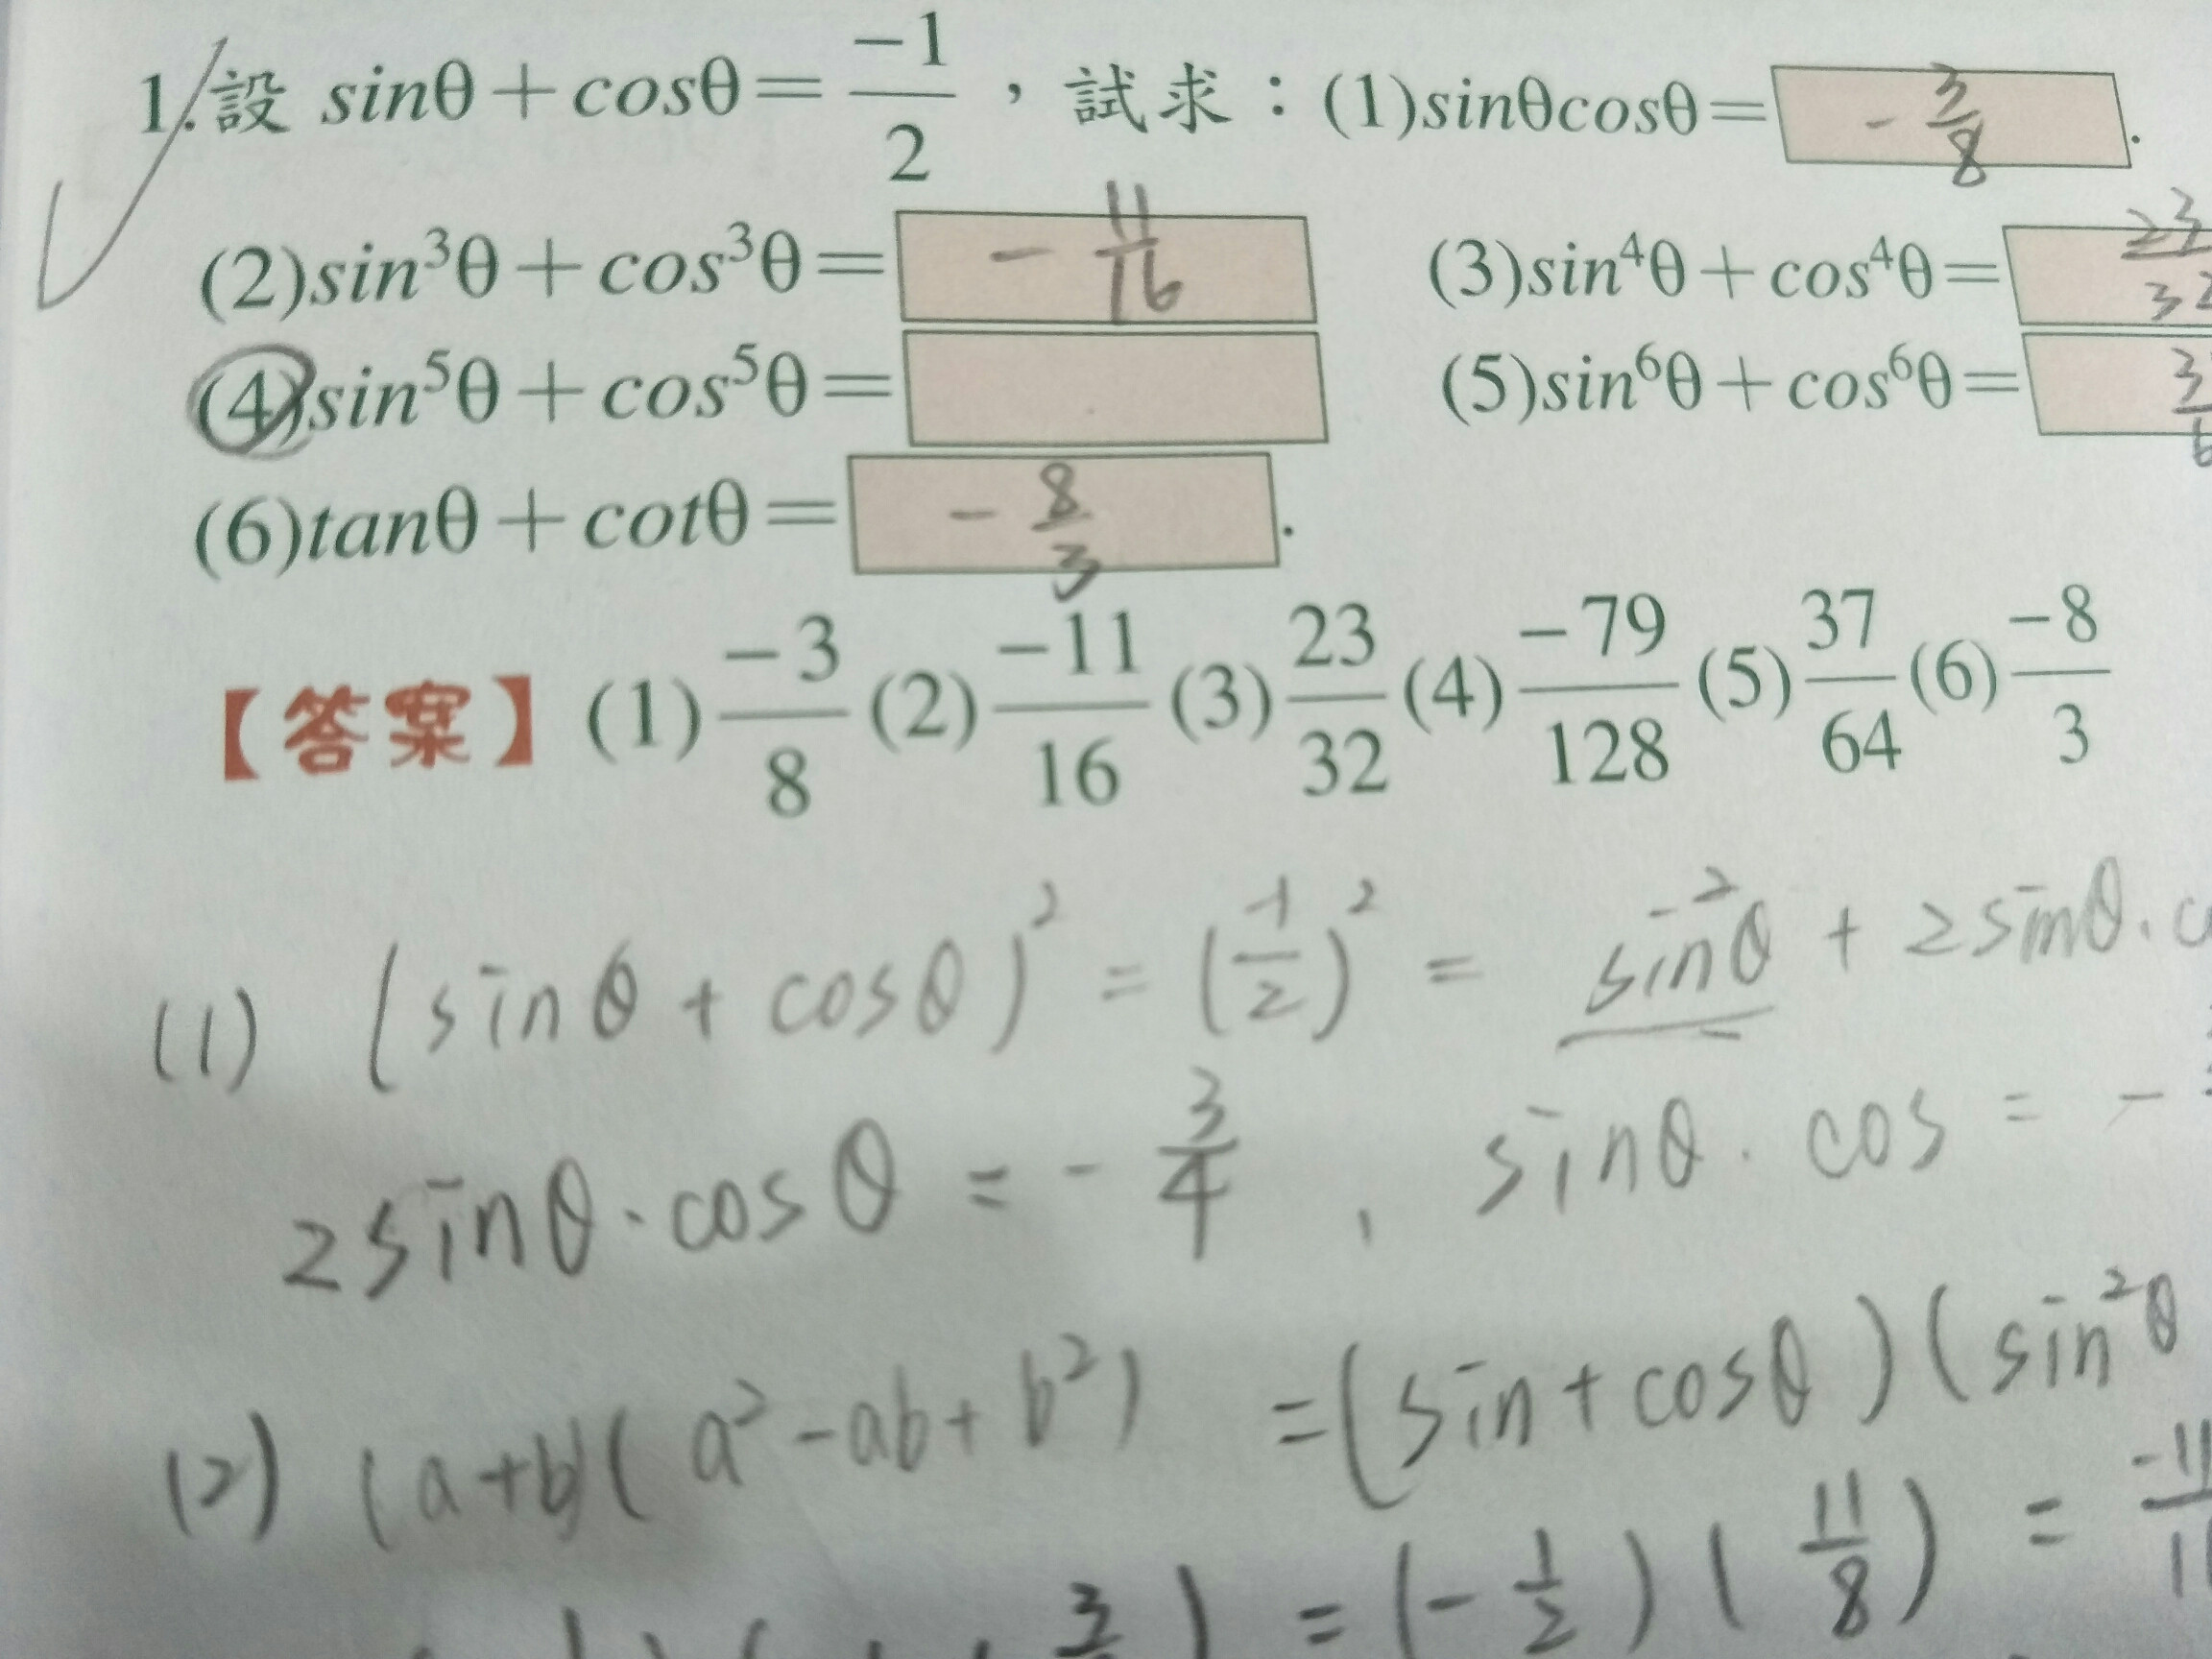 1.設 sinθ+cosθ=-1/2，試求：(1)sinθcosθ= -3/8 .
(2)sin³θ+cos³θ= -11/16 (3)sin⁴θ+cos⁴θ= 23/32
(4)sin⁵θ+cos⁵θ= (5)sin⁶θ+cos⁶θ= 3
(6)tanθ+cotθ= -8/3 .
【答案】(1)-3/8 (2)-11/16 (3)23/32 (4)-79/128 (5)37/64 (6)-8/3
(1) (sinθ+cosθ)² = (-1/2)² = sin²θ + 2sinθ·c
2sinθ·cosθ = -3/4 , sinθ·cos = -
(2) (a+b)(a²-ab+b²) = (sin+cosθ)(sin²θ
= (-1/2)(11/8) = -11